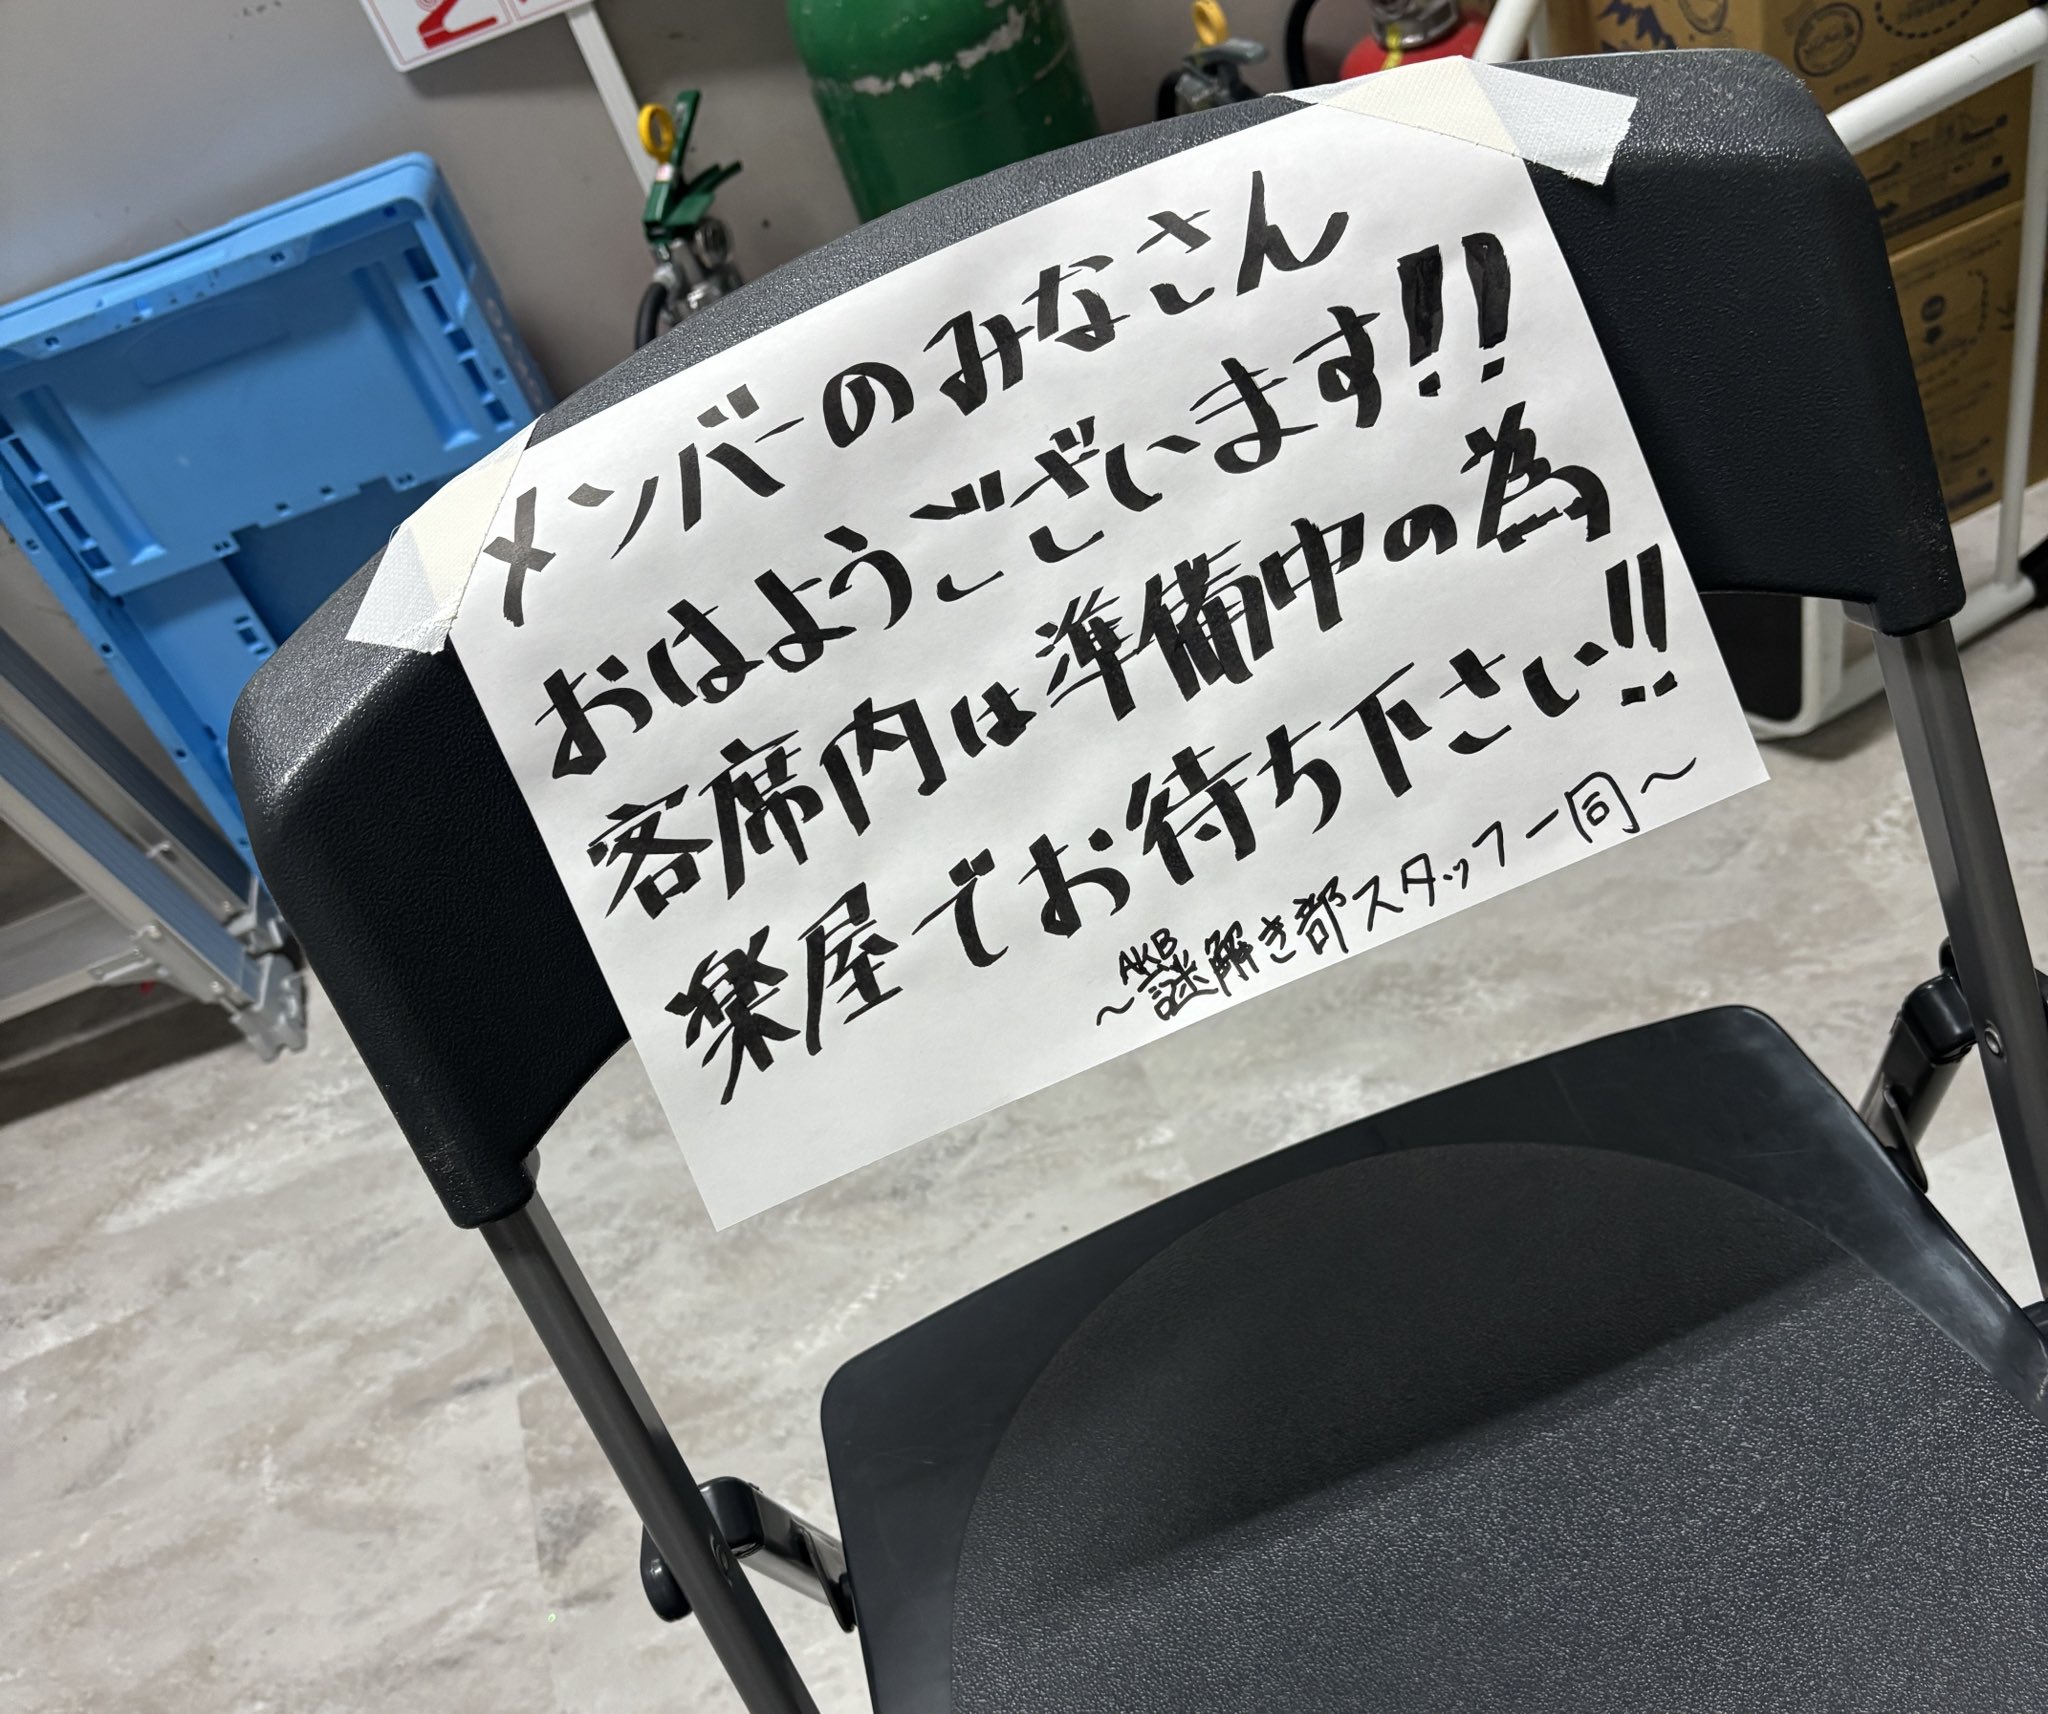 メンバーのみなさん
おはようございます!!
客席内は準備中の為
楽屋でお待ち下さい!!
～AKB謎解き部スタッフ一同～